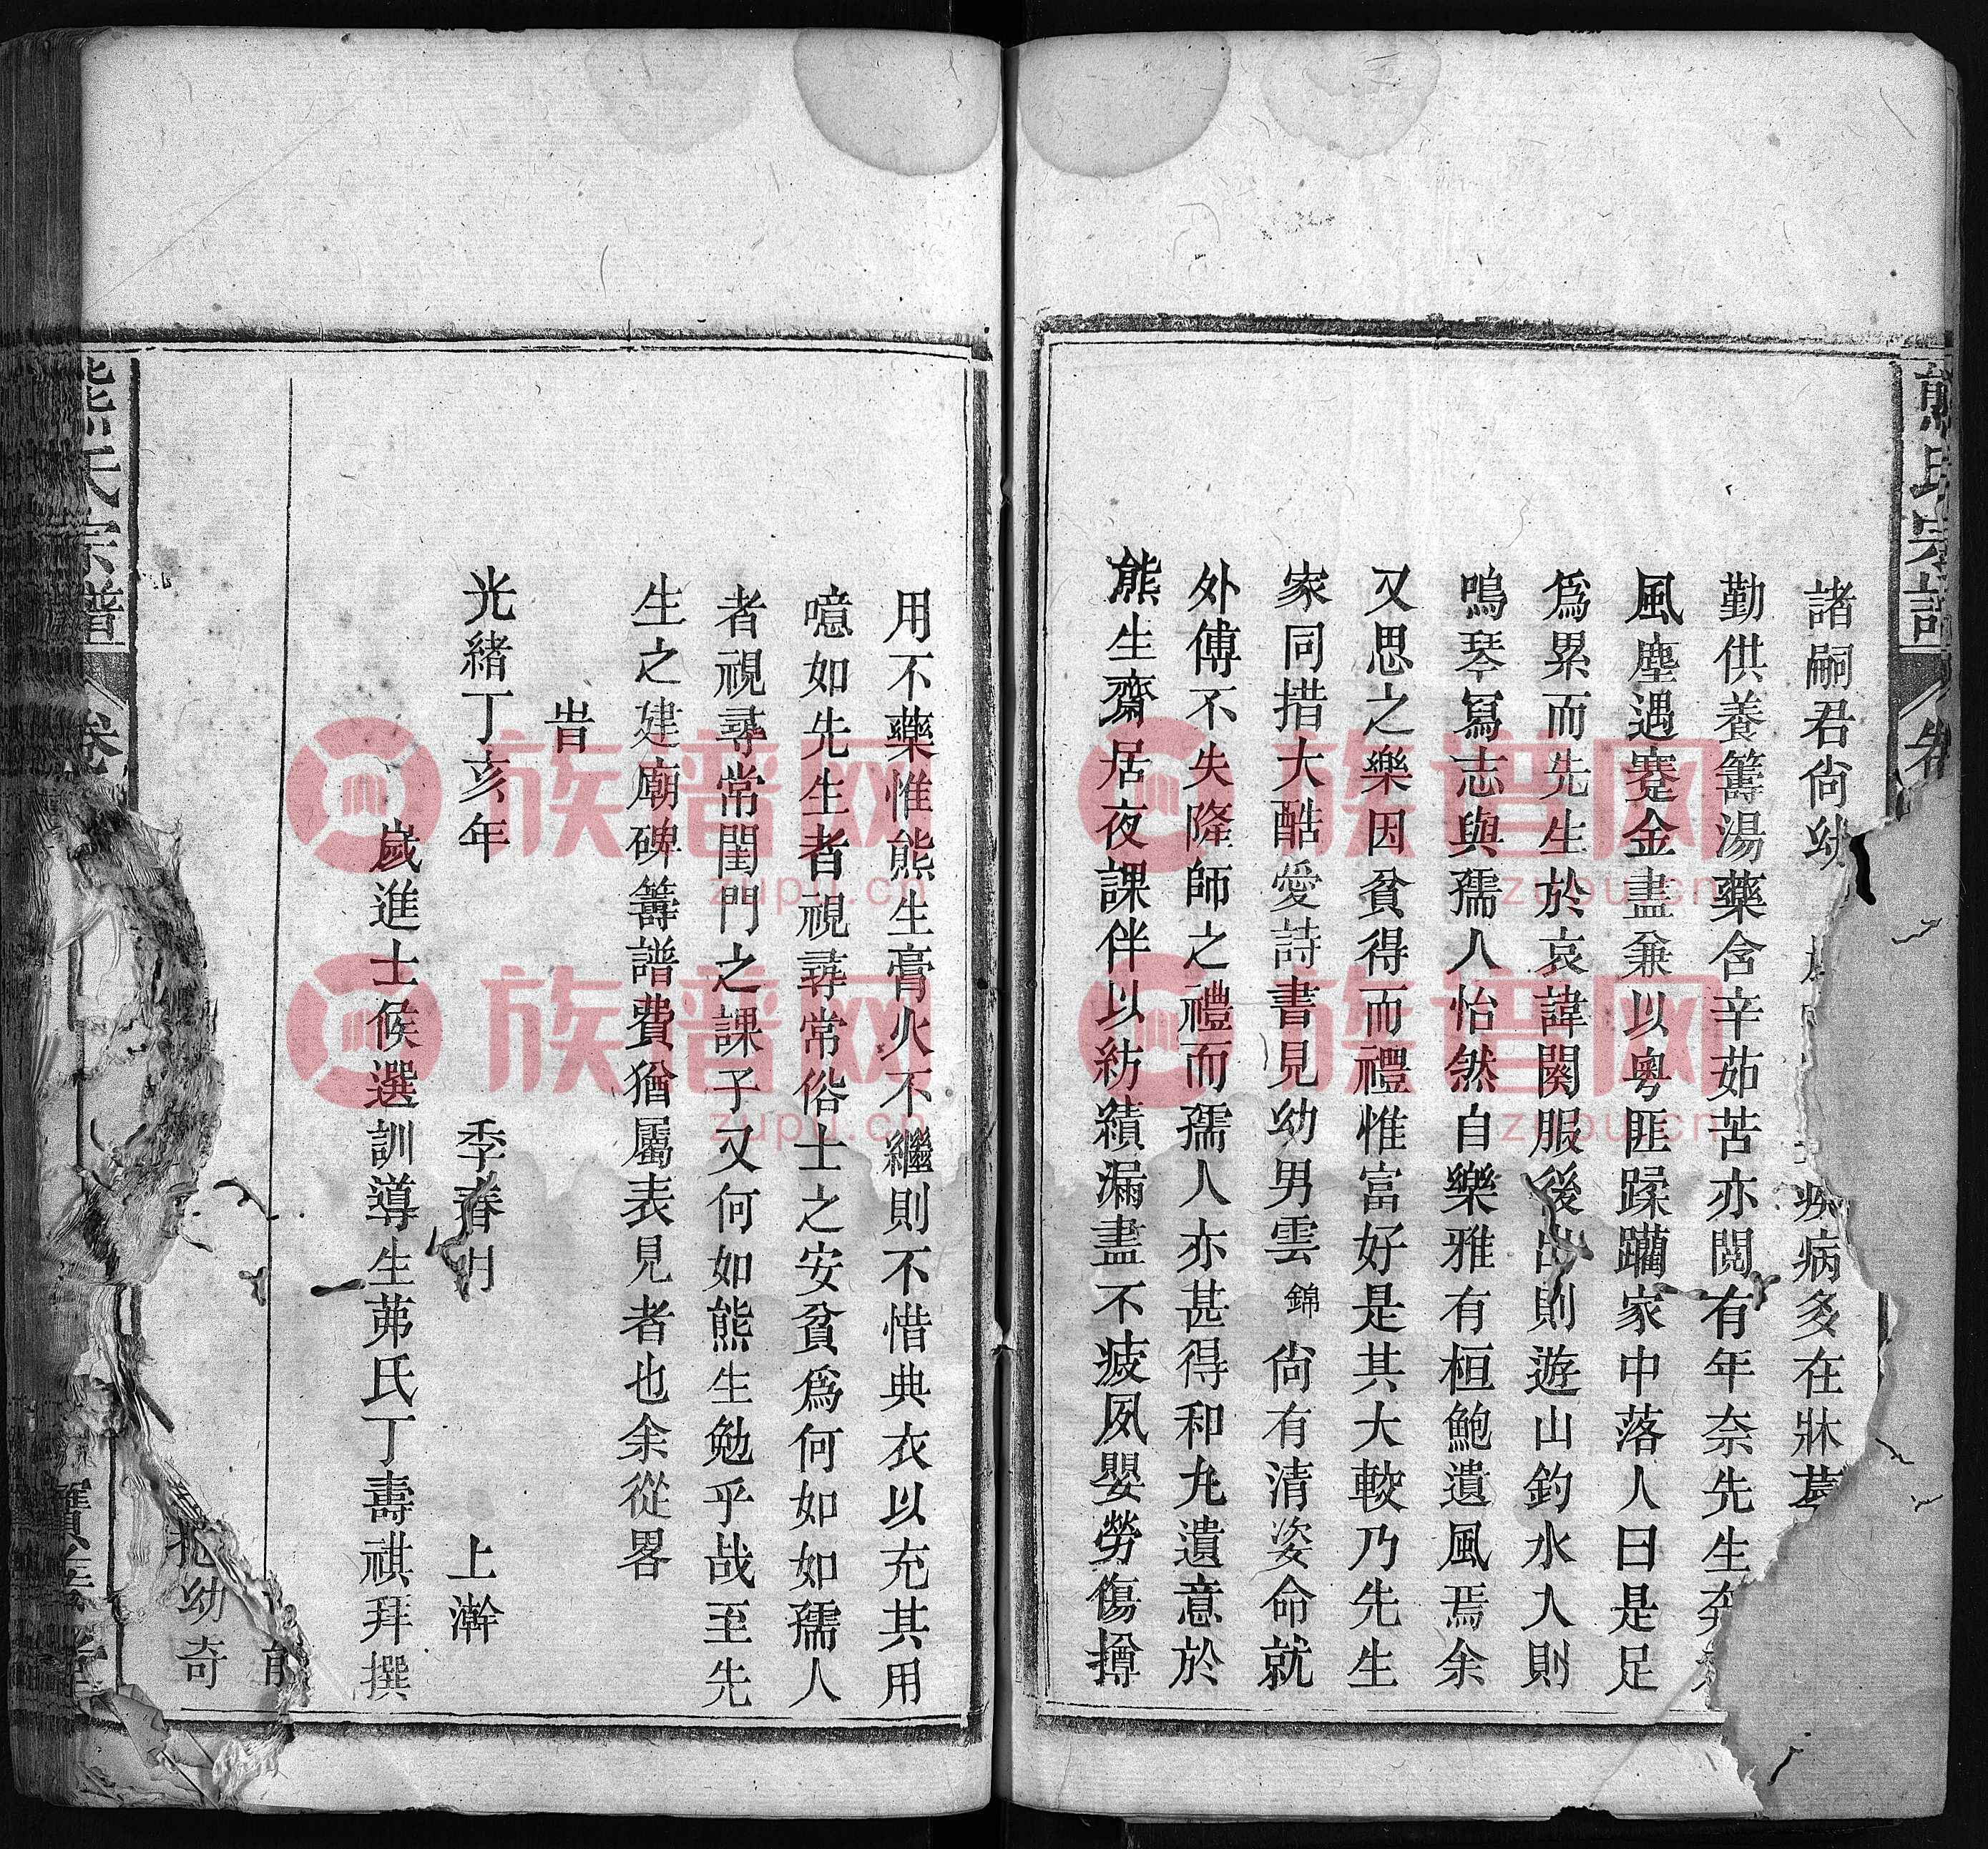 熊氏宗譜
諸嗣君尙幼疾病多在牀
勤供養籌湯藥含辛茹苦亦閱有年奈先生
風塵遇蹇金盡兼以粵匪蹂躪家中落人曰是足
爲累而先生於哀諱闋服後出則遊山釣水入則
鳴琴寫志與孺人怡然自樂雅有桓鮑遺風焉余
又思之樂因貧得而禮惟富好是其大較乃先生
家同措大酷愛詩書見幼男雲錦尙有清姿命就
外傅不失隆師之禮而孺人亦甚得和丸遺意於
熊生齋居夜課伴以紡績漏盡不疲夙嬰勞傷撙
用不藥惟熊生膏火不繼則不惜典衣以充其用
噫如先生者視尋常俗士之安貧爲何如如孺人
者視尋常閨門之課子又何如熊生勉乎哉至先
生之建廟碑籌譜費猶屬表見者也余從畧
旹
光緒丁亥年季春月上澣
歲進士候選訓導生茀氏丁壽祺拜撰
幼奇
熊氏宗譜
卷